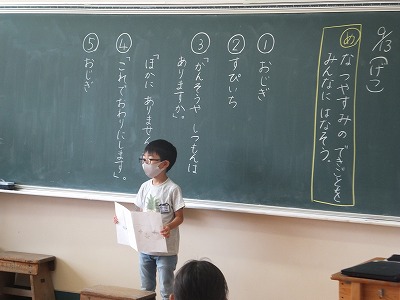 9/13(げつ)
め なつやすみの できごとを
みんなに はなそう。
① おじぎ
② すぴいち
③ 「かんそうや しつもんは
ありますか。」
「ほかに ありませんか
④ 「これで おわりにします」。
⑤ おじぎ